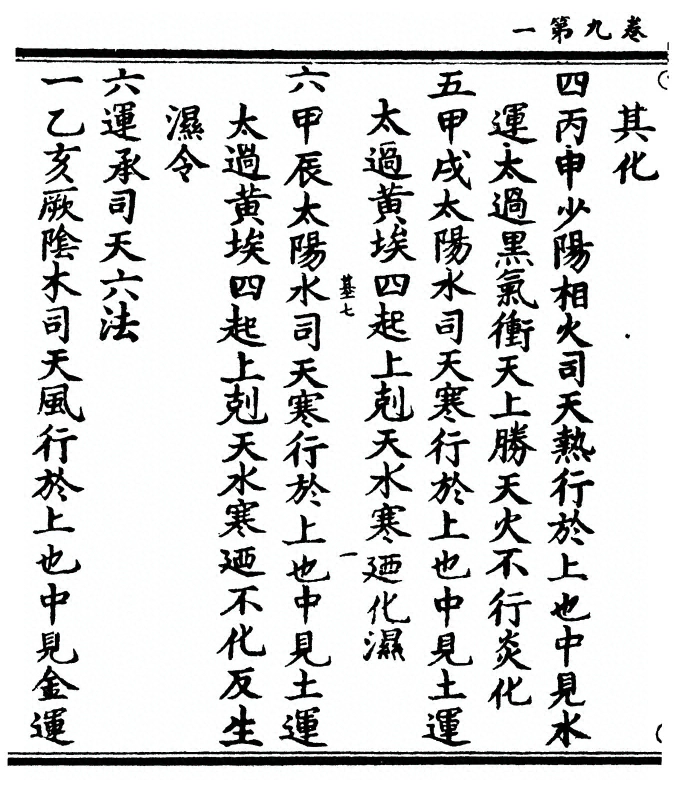 卷九第一
其化
四丙申少陽相火司天熱行於上也中見水
運太過黑氣衝天上勝天火不行炎化
五甲戌太陽水司天寒行於上也中見土運
太過黃埃四起上剋天水寒廼化濕
基七
一
六甲辰太陽水司天寒行於上也中見土運
太過黃埃四起上剋天水寒廼不化反生
濕令
六運承司天六法
一乙亥厥陰木司天風行於上也中見金運